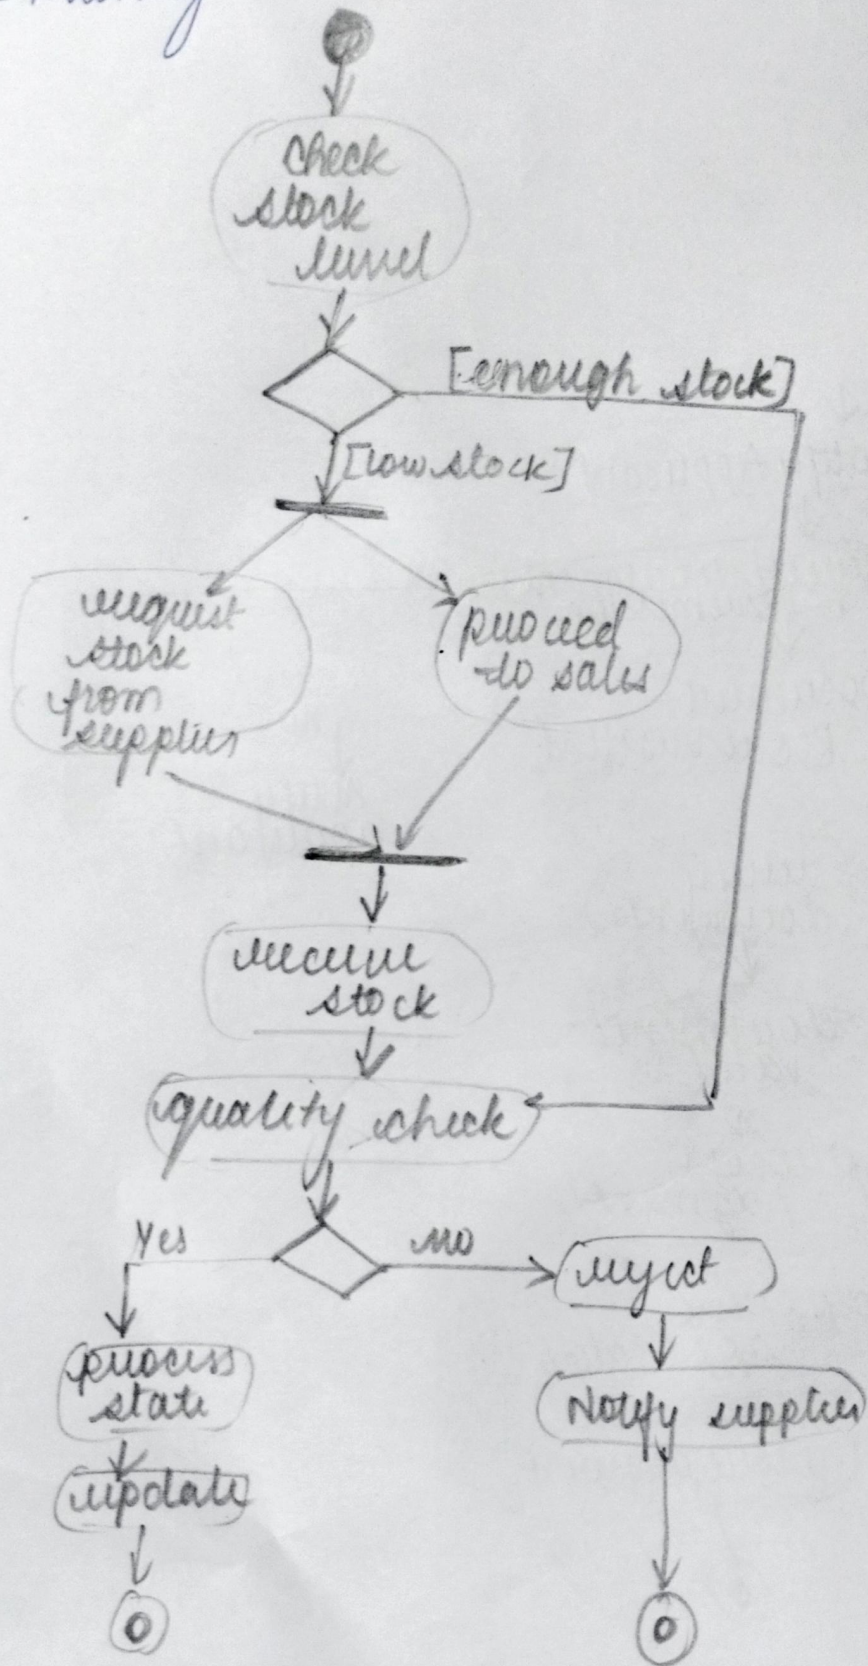 check
stock
level
[enough stock]
[low stock]
request
stock
from
supplier
proceed
to sales
receive
stock
quality check
Yes
no
reject
process
state
Notify supplier
update